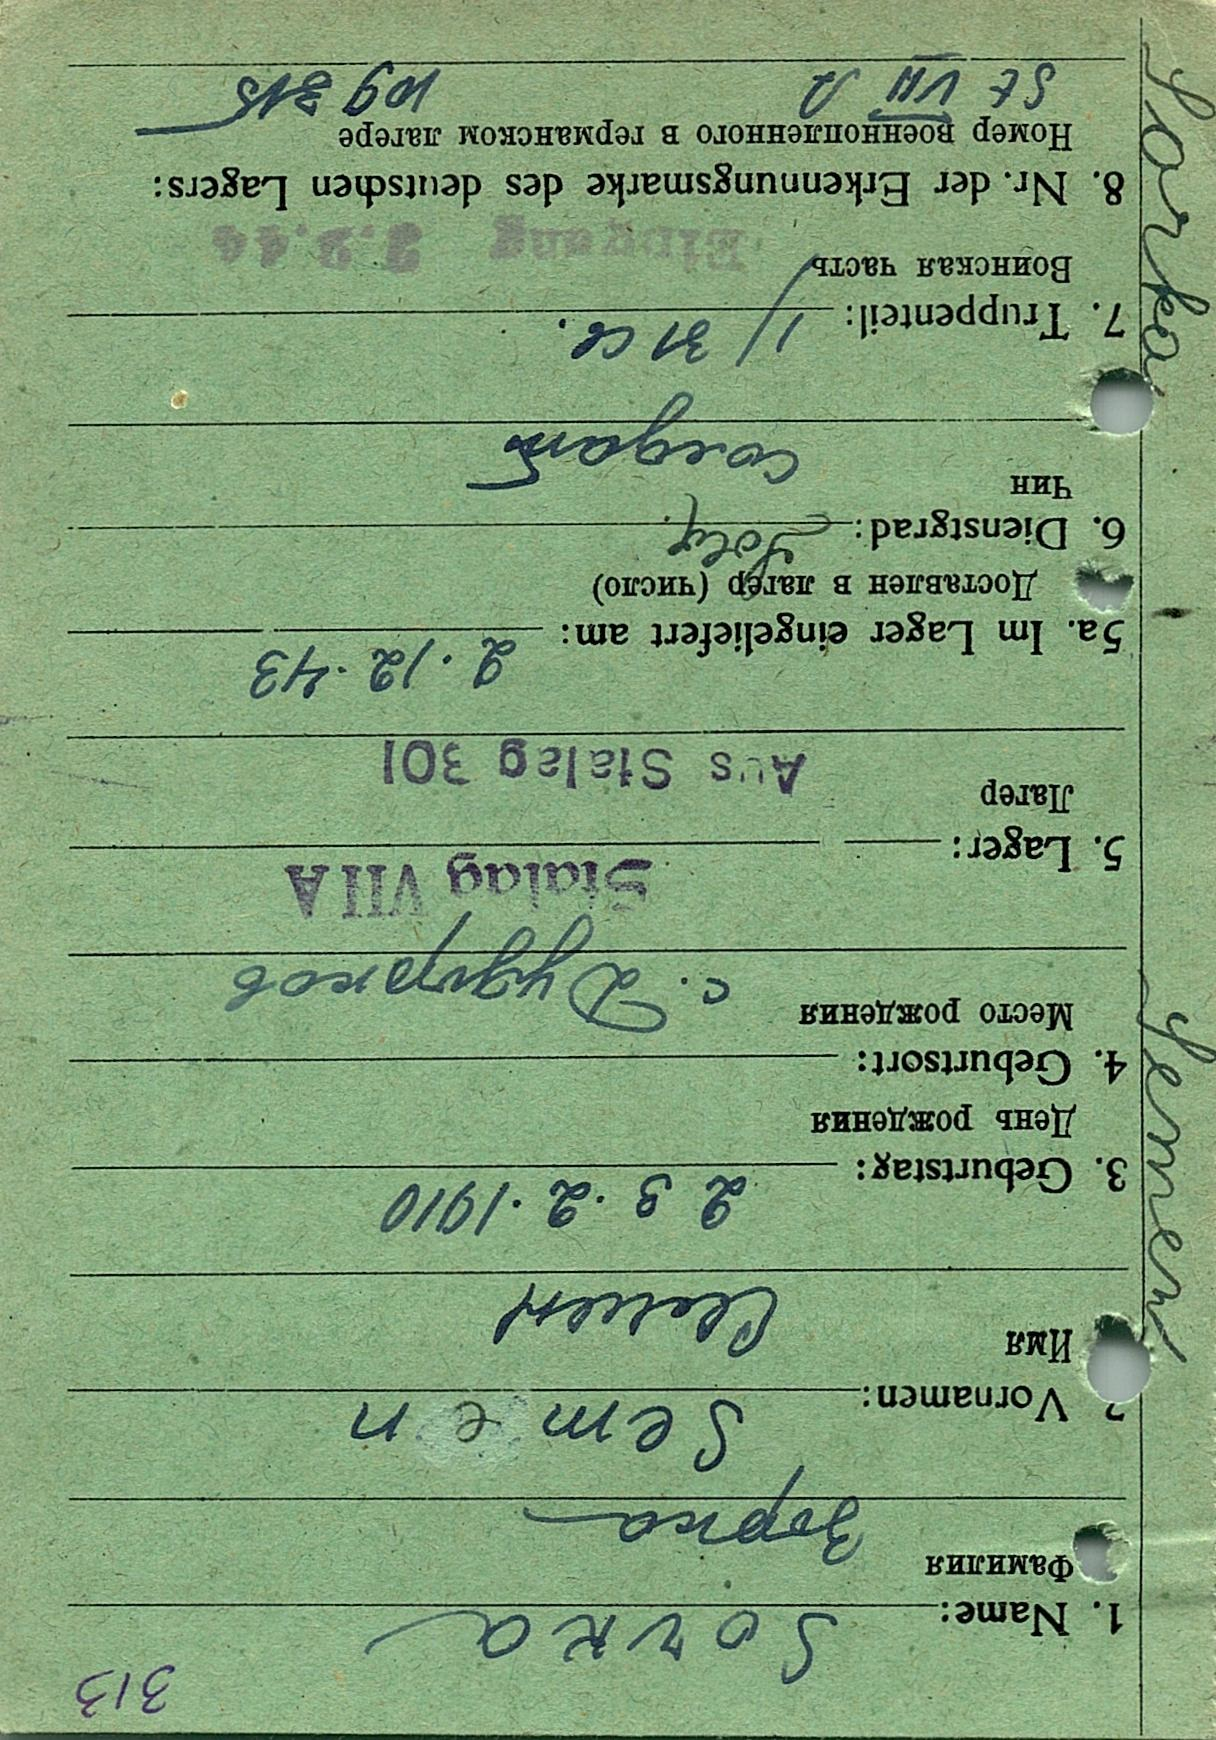 313
1. Name: Sorka
Фамилия
Зорка
2 Vornamen: Semen
Имя
Семен
3. Geburtstag: 23.2.1910
День рождения
4. Geburtsort:
Место рождения
с.
Stalag VII A
5. Lager:
Лагер
Aus Stalag 301
5a. Im Lager eingeliefert am: 2.12.43
Доставлен в лагер (число)
6. Dienstgrad: Sold.
Чин
солдат
7. Truppenteil: 1/31
Воинская часть
Eingang 3.9.44
8. Nr. der Erkennungsmarke des deutschen Lagers:
Номер военнопленного в германском лагере
St VII A 109315
Sorka Semen